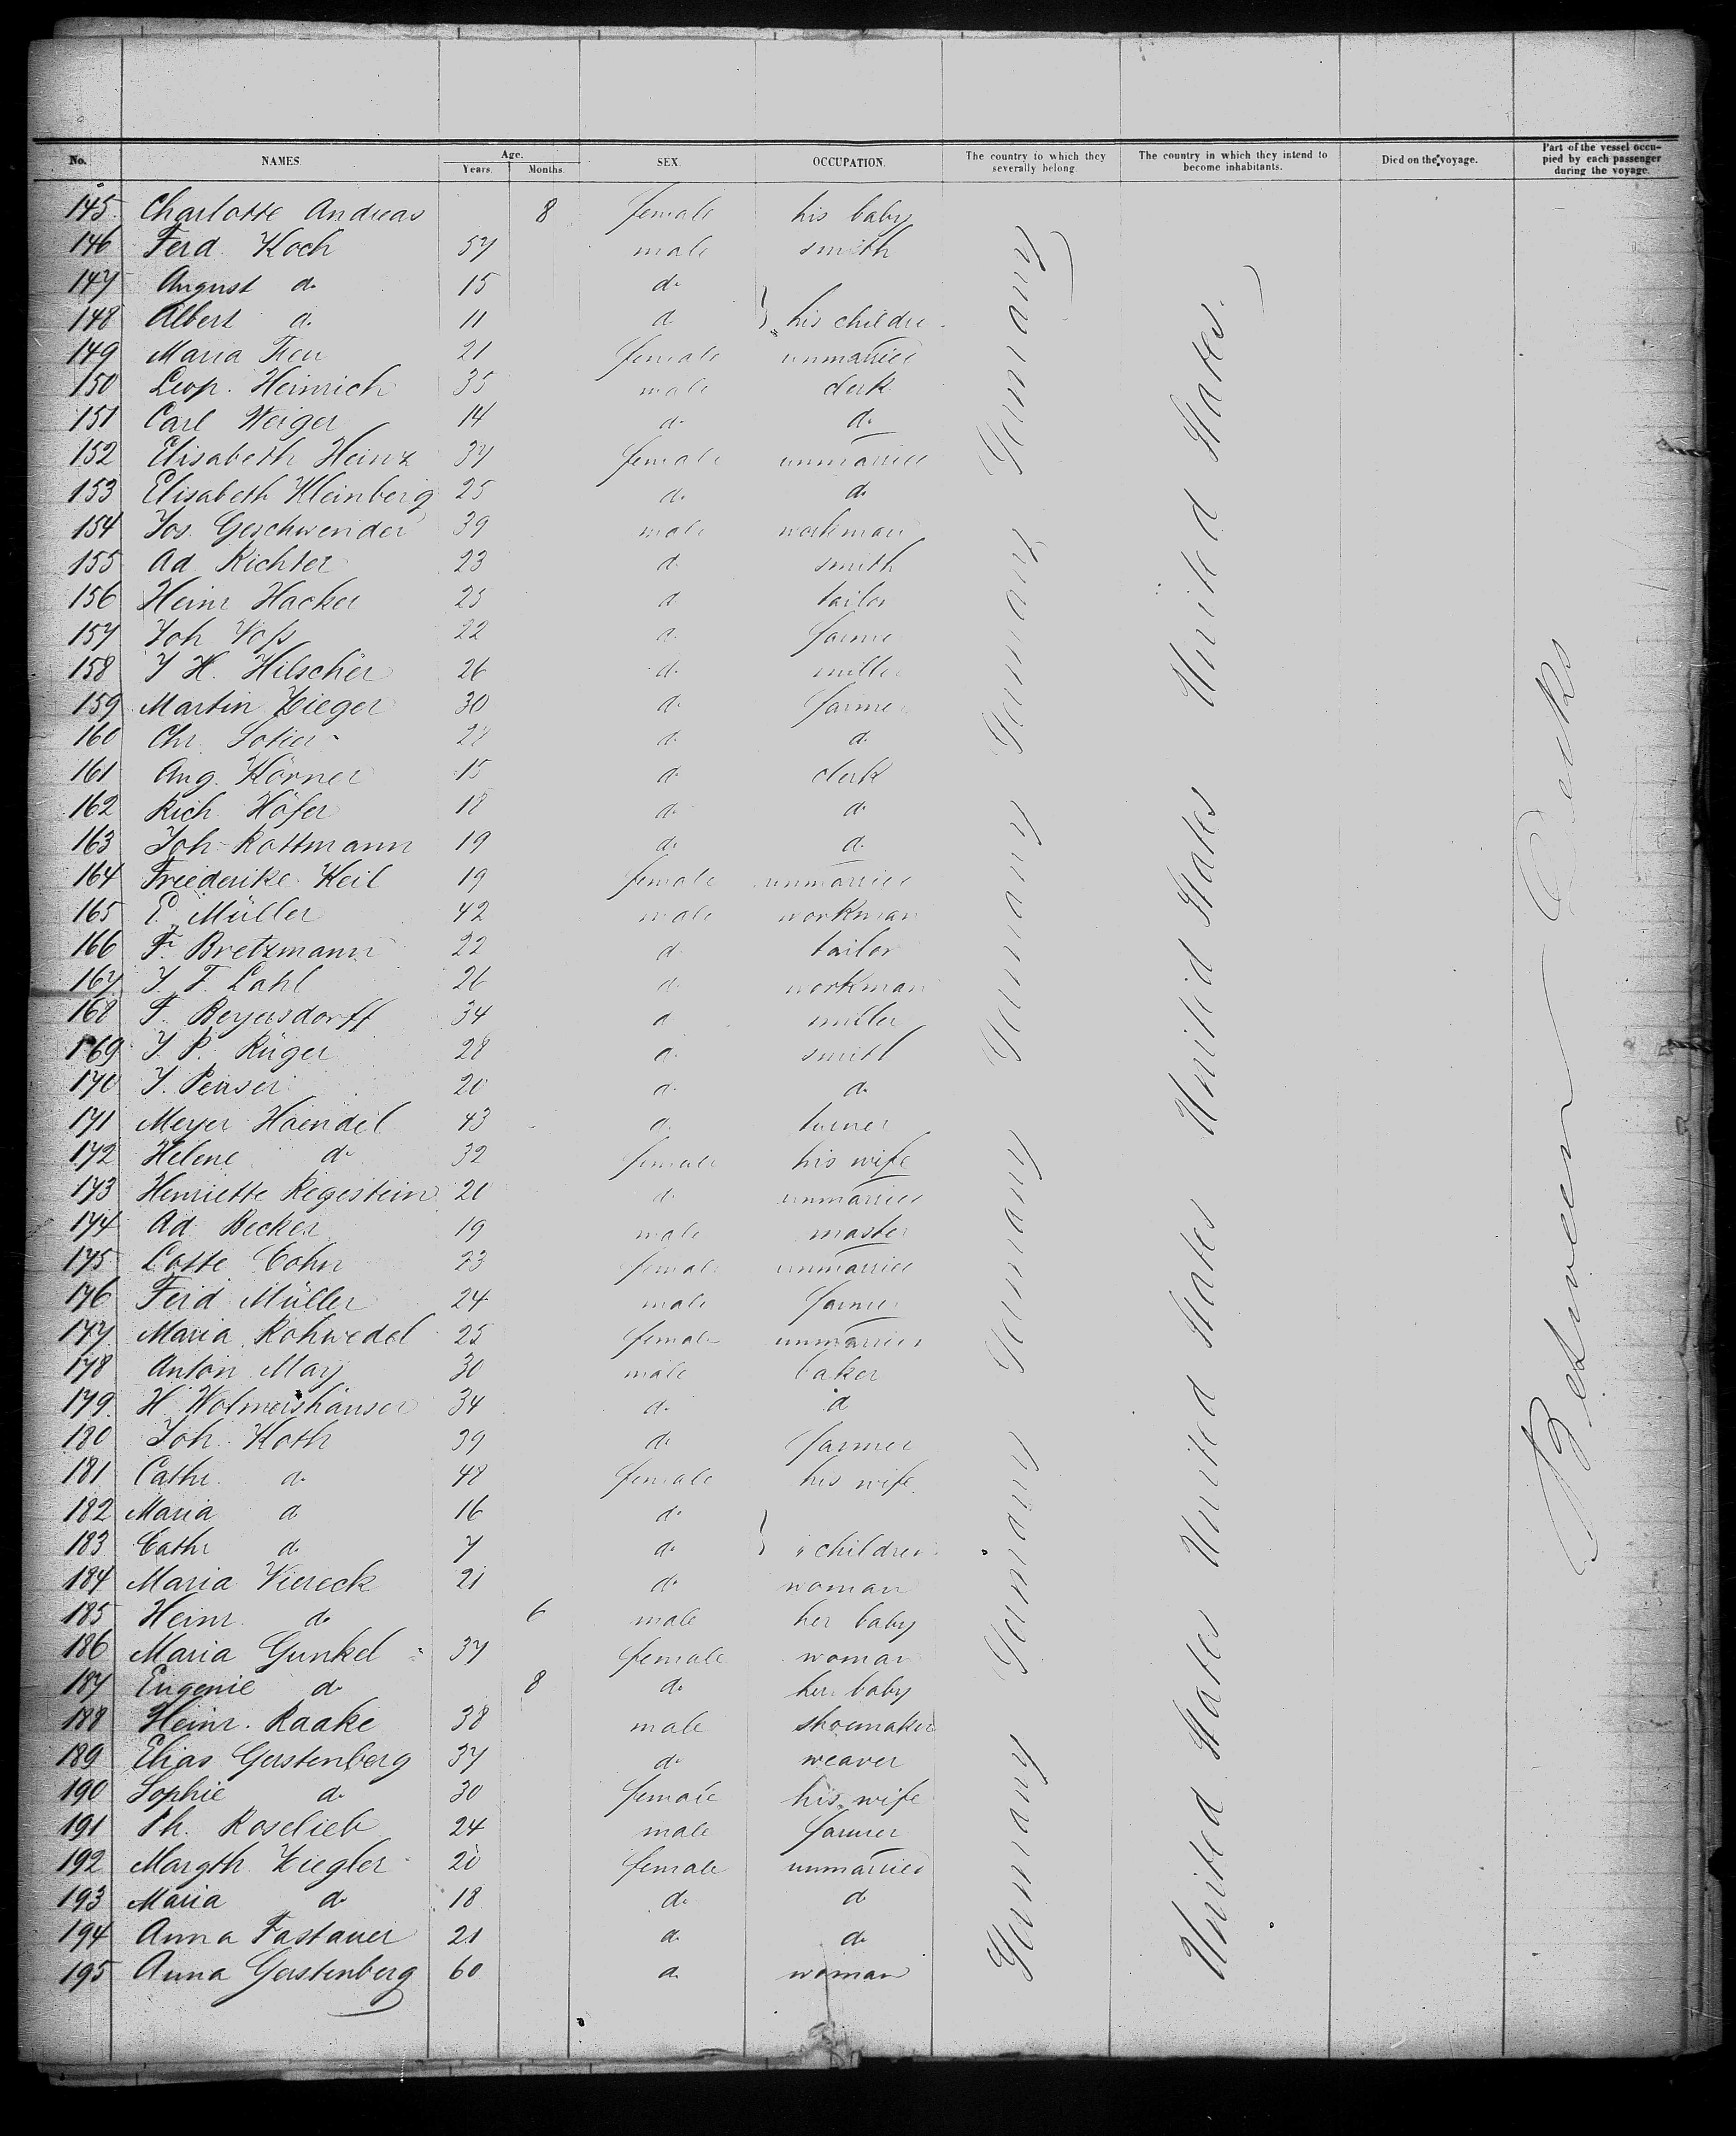 No. NAMES. Age. Years. Months. SEX. OCCUPATION. The country to which they severally belong. The country in which they intend to become inhabitants. Died on the voyage. Part of the vessel occupied by each passenger during the voyage.
145 Charlotte Andreas 8 female his baby
146 Ferd. Koch 57 male smith
147 August do 15 do
148 Albert do 11 do } his childre
149 Maria 21 female unmarried
150 Leop. Heinrich 35 male clerk
151 Carl Weiger 14 do do
152 Elisabeth Heinz 37 female unmarried
153 Elisabeth Kleinberg 25 do do
154 Jos. Geschwender 39 male workman
155 Ad. Richter 23 do smith
156 Heinr Hacker 25 do tailor
157 Joh Voß 22 do farmer
158 J H. Hilscher 26 do miller
159 Martin Zieger 30 do farmer
160 Chr. do do
161 Aug. Körner 15 do clerk
162 Rich Höfer 18 do do
163 Joh Rottmann 19 do do
164 Friederike Keil 19 female unmarried
165 E. Müller 42 male workman
166 Fr. Bretzmann 22 do tailor
167 J. F. Lahl 26 do workman
168 F. Beyersdorff 34 do miller
169 J. P. Rüger 28 do smith
170 J. 20 do do
171 Meyer Haendel 43 do turner
172 Helene do 32 female his wife
173 Henriette Regestein 20 do unmarried
174 Ad Becker 19 male master
175 Lotte Cohn 23 female unmarried
176 Ferd Müller 24 male farmer
177 Maria Rohwedel 25 female unmarried
178 Anton May 30 male baker
179 H. Wolmershäuser 34 do do
180 Joh. Koth 39 do farmer
181 Cathr. do 48 female his wife
182 Maria do 16 do
183 Cathr do 7 do } " children
184 Maria Viereck 21 do woman
185 Heinr. do 6 male her baby
186 Maria Gunkel 37 female woman
187 Eugenie do 8 do her baby
188 Heinr. Raake 38 male shoemaker
189 Elias Gerstenberg 37 do weaver
190 Sophie do 30 female his wife
191 Ph. Roselieb 24 male farmer
192 Margth. Ziegler 20 female unmarried
193 Maria do 18 do do
194 Anna Fastauer 21 do do
195 Anna Gerstenberg 60 do woman
Germany
Germany
Germany
Germany
Germany
Germany
United States
United States
United States
United States
Between Decks